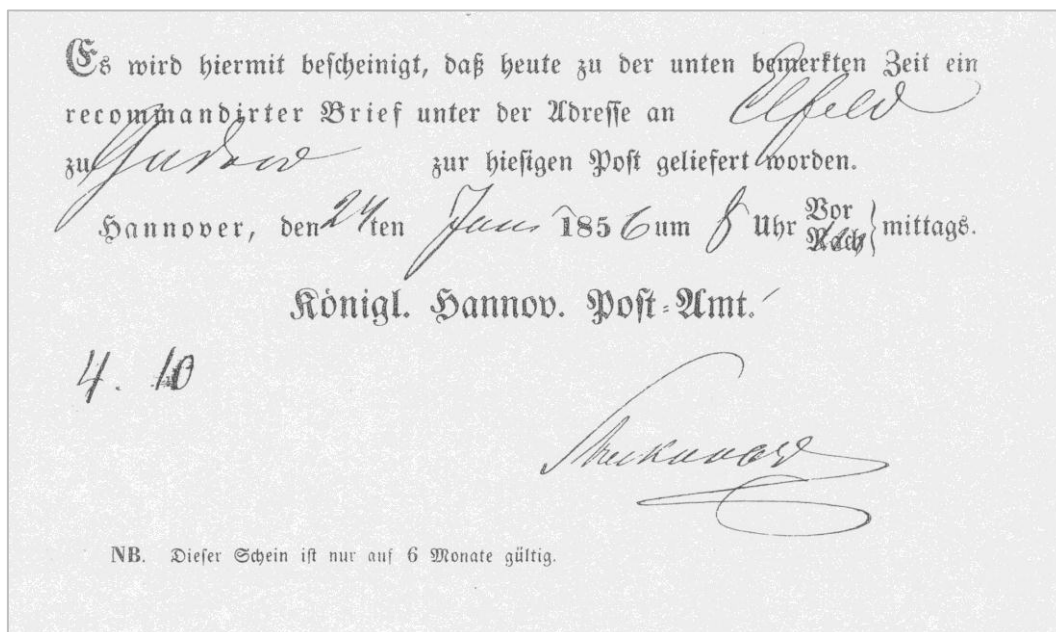 Es wird hiermit bescheinigt, daß heute zu der unten bemerkten Zeit ein
recommandirter Brief unter der Adresse an Elfeld
zu Gudow zur hiesigen Post geliefert worden.
Hannover, den 24ten Juni 1856 um 8 Uhr Vor Nach } mittags.
Königl. Hannov. Post-Amt.
4. 10
NB. Dieser Schein ist nur auf 6 Monate gültig.